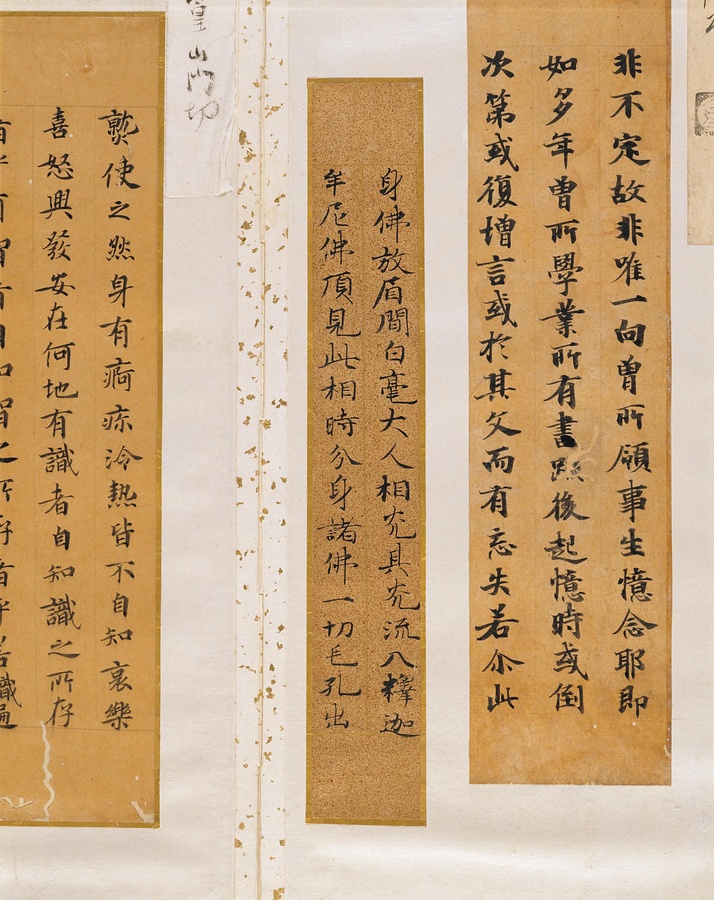 非不定故非唯一向曾所領事生憶念耶即
如多年曾所學業所有書跡後起憶時或倒
次第或復增言或於其文而有忘失若尒此
身佛放眉間白毫大人相光其光流入釋迦
牟尼佛頂見此相時分身諸佛一切毛孔出
山門切
使之然身有痾痳冷熱皆不自知哀樂
喜怒興發安在何地有識者自知識之所存